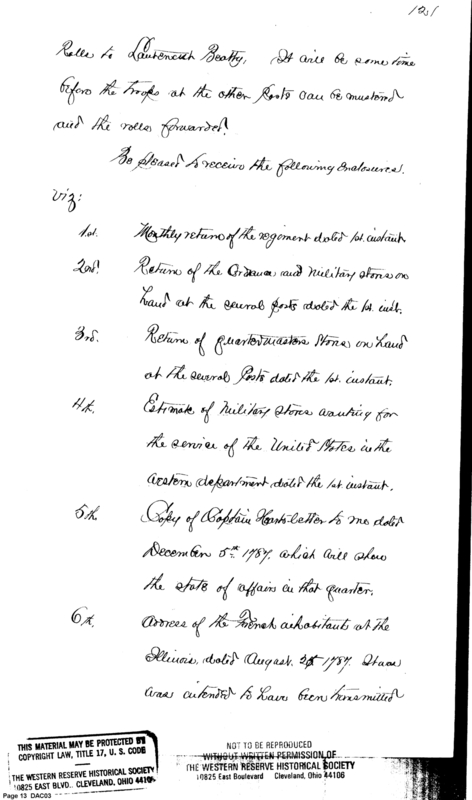 121
Rolls to Lieutenant Beatty, It will be some time
before the troops at the other Posts can be mustered
and the rolls forwarded.
Be pleased to receive the following enclosures.
viz:
1st. Monthly return of the regiment dated 1st. instant.
2nd. Return of the Ordnance and Military stores on
hand at the several posts dated the 1st. inst.
3rd. Return of quartermasters stores on hand
at the several Posts dated the 1st. instant.
4th. Estimate of Military stores wanting for
the service of the United States in the
western department dated the 1st. instant.
5th. Copy of Captain letter to me dated
December 5th 1787. which will show
the state of affairs in that quarter.
6th. Address of the French inhabitants at the
Illinois, dated August. 1787.
was intended to have been transmitted
THIS MATERIAL MAY BE PROTECTED BY
COPYRIGHT LAW, TITLE 17, U. S. CODE
THE WESTERN RESERVE HISTORICAL SOCIETY
10825 EAST BLVD., CLEVELAND, OHIO 44106
NOT TO BE REPRODUCED
WITHOUT WRITTEN PERMISSION OF
THE WESTERN RESERVE HISTORICAL SOCIETY
10825 East Boulevard Cleveland, Ohio 44106
Page 13 DAC03